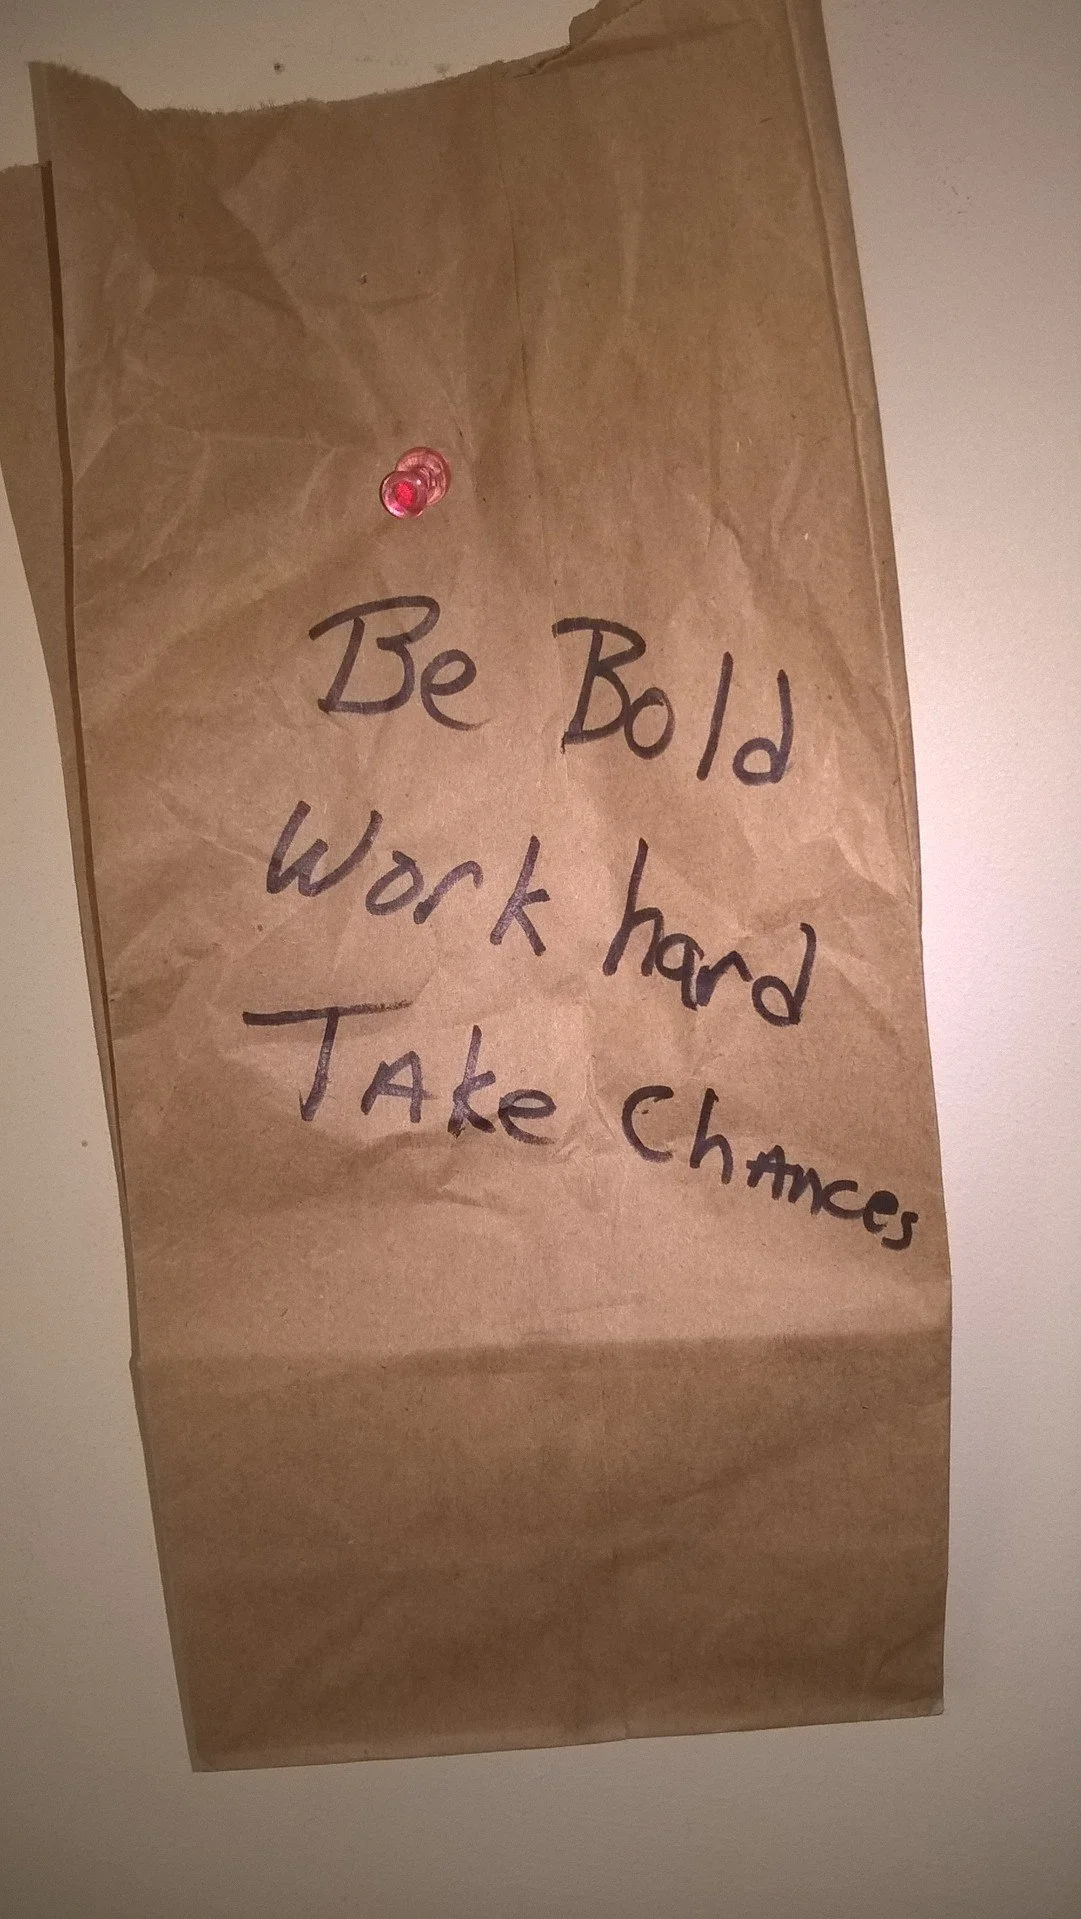 Be Bold
Work hard
TAke ChAnces